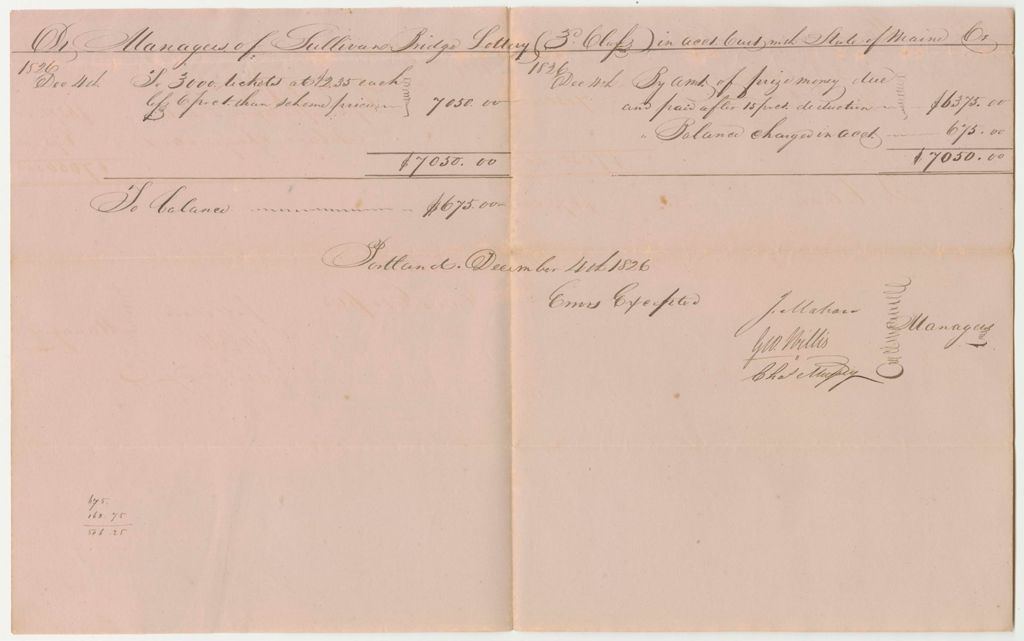 Dr Managers of Sullivan Bridge Lottery (3d Class) in acct Curt with State of Maine Cr
1826
Dec 4th To 3000 tickets at $2.35 each
6 pr ct than scheme price 7050.00
$7050.00
To balance $675.00
1826
Dec 4th By amt of prize money due
and paid after 15 pr ct. deduction $6375.00
" Balance charged in acct 675.00
$7050.00
Portland. December 4th 1826
Errors Excepted
J. Mahan
Geo. Willis
Chas Murphy
Managers
675.
168.75
506.25